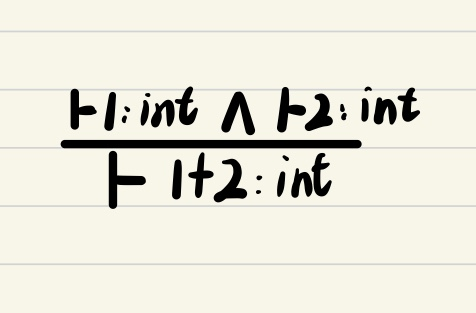 ⊢1: int ∧ ⊢2: int
⊢ 1+2: int